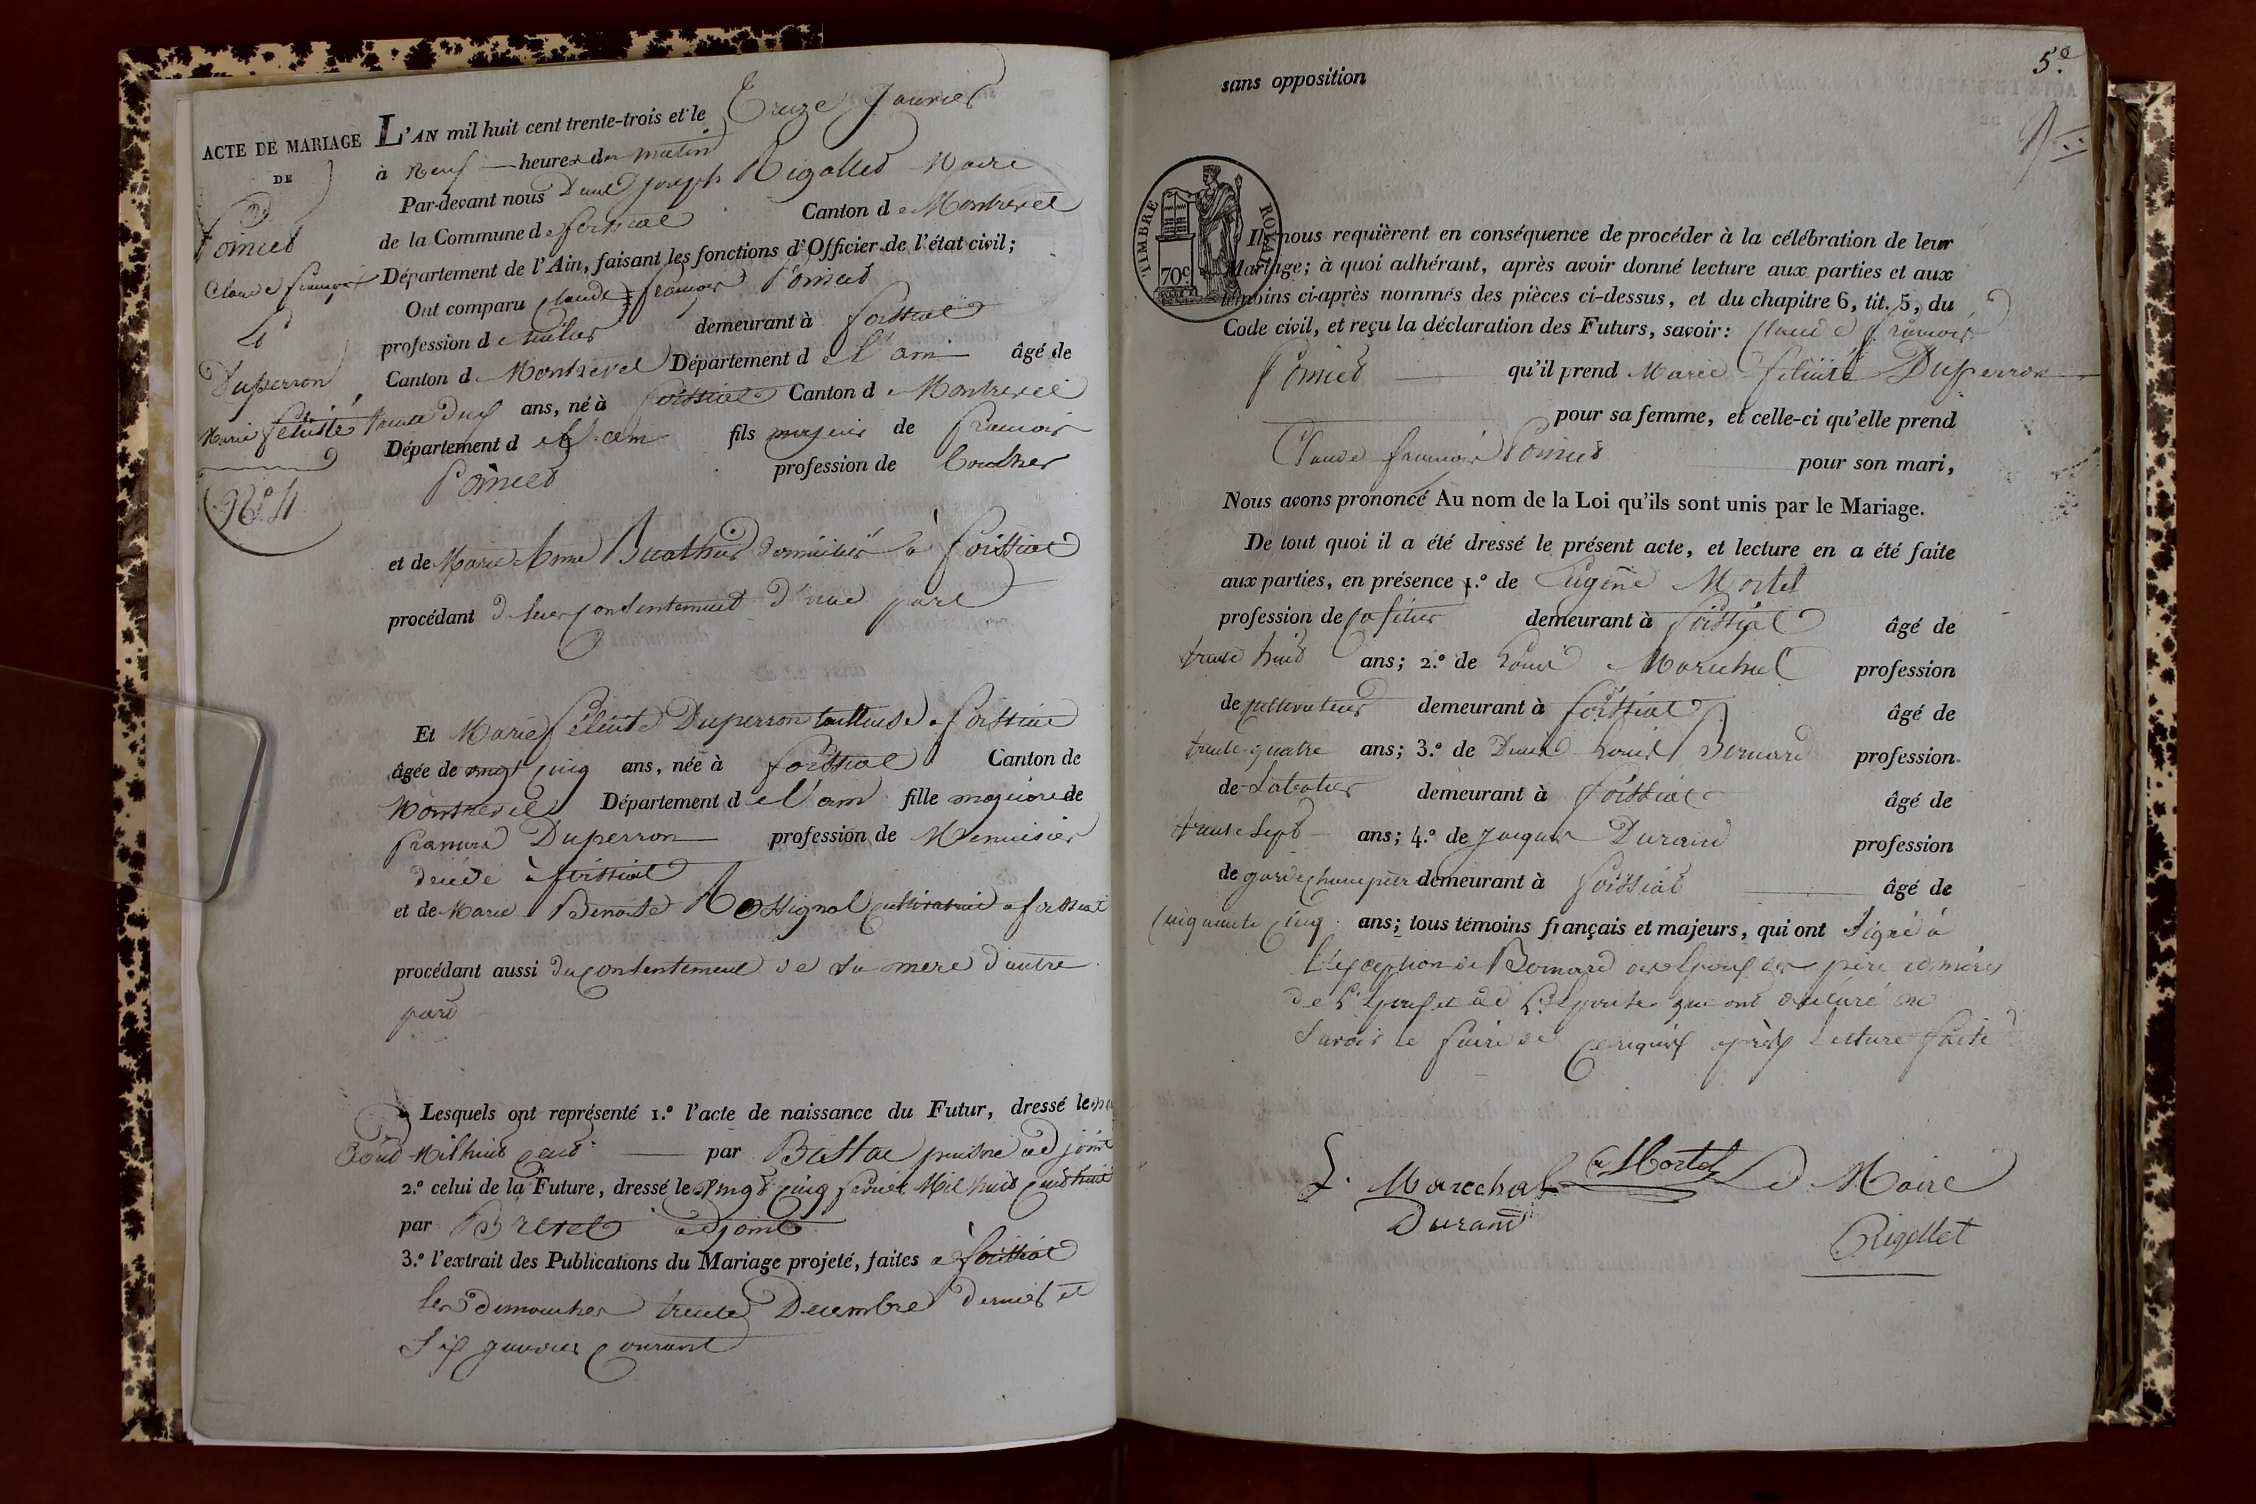 ACTE DE MARIAGE
DE
Claude françois
&
Duperron
Marie felicité
N° 4
L'AN mil huit cent trente-trois et le Treize Janvier
à Neuf heures du matin
Par-devant nous Joseph Rigollet Maire
de la Commune de foissiat Canton de Montrevel
Département de l'Ain, faisant les fonctions d'Officier de l'état civil;
Ont comparu Claude françois
profession de demeurant à foissiat
Canton de Montrevel Département de l'ain âgé de
trente deux ans, né à foissiat Canton de Montrevel
Département de l'ain fils majeur de françois
profession de
et de Marie Anne domiciliés à foissiat
procédant de leur consentement d'une part
Et Marie félicité Duperron tailleuse a foissiat
âgée de vingt cinq ans, née à foissiat Canton de
Montrevel Département de l'ain fille majeure de
françois Duperron profession de Menuisier
décédé à foissiat
et de Marie Benoite Rossignol cultivatrice a foissiat
procédant aussi du consentement de sa mere d'autre
part
Lesquels ont représenté 1.° l'acte de naissance du Futur, dressé le
Mil huit cent par adjoint
2.° celui de la Future, dressé le vingt cinq fevrier Mil huit cent huit
par Brevet adjoint
3.° l'extrait des Publications du Mariage projeté, faites a foissiat
les dimanches trente Decembre dernier et
Six janvier courant
5.e
sans opposition
TIMBRE ROYAL
70c
Ils nous requièrent en conséquence de procéder à la célébration de leur
Mariage; à quoi adhérant, après avoir donné lecture aux parties et aux
témoins ci-après nommés des pièces ci-dessus, et du chapitre 6, tit. 5, du
Code civil, et reçu la déclaration des Futurs, savoir: Claude françois
qu'il prend Marie felicité Duperron
pour sa femme, et celle-ci qu'elle prend
Claude françois pour son mari,
Nous avons prononcé Au nom de la Loi qu'ils sont unis par le Mariage.
De tout quoi il a été dressé le présent acte, et lecture en a été faite
aux parties, en présence 1.° de Eugène Mortel
profession de cafetier demeurant à foissiat âgé de
trente huit ans; 2.° de Louis Marechal profession
de cultivateur demeurant à foissiat âgé de
trente quatre ans; 3.° de Louis Bernard profession
de demeurant à foissiat âgé de
trente sept ans; 4.° de Jacques Durand profession
de garde champetre demeurant à foissiat âgé de
cinquante cinq ans; tous témoins français et majeurs, qui ont signé à
l'exception de Bernard des époux des père et mère
de l'époux et de l'épouse qui ont déclaré ne
Savoir le faire de ce requis après Lecture faite
L. Marechal Mortel Le Maire
Durand
Rigollet